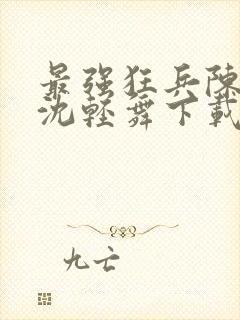 最强狂兵陳
沈輕舞下載
九亡